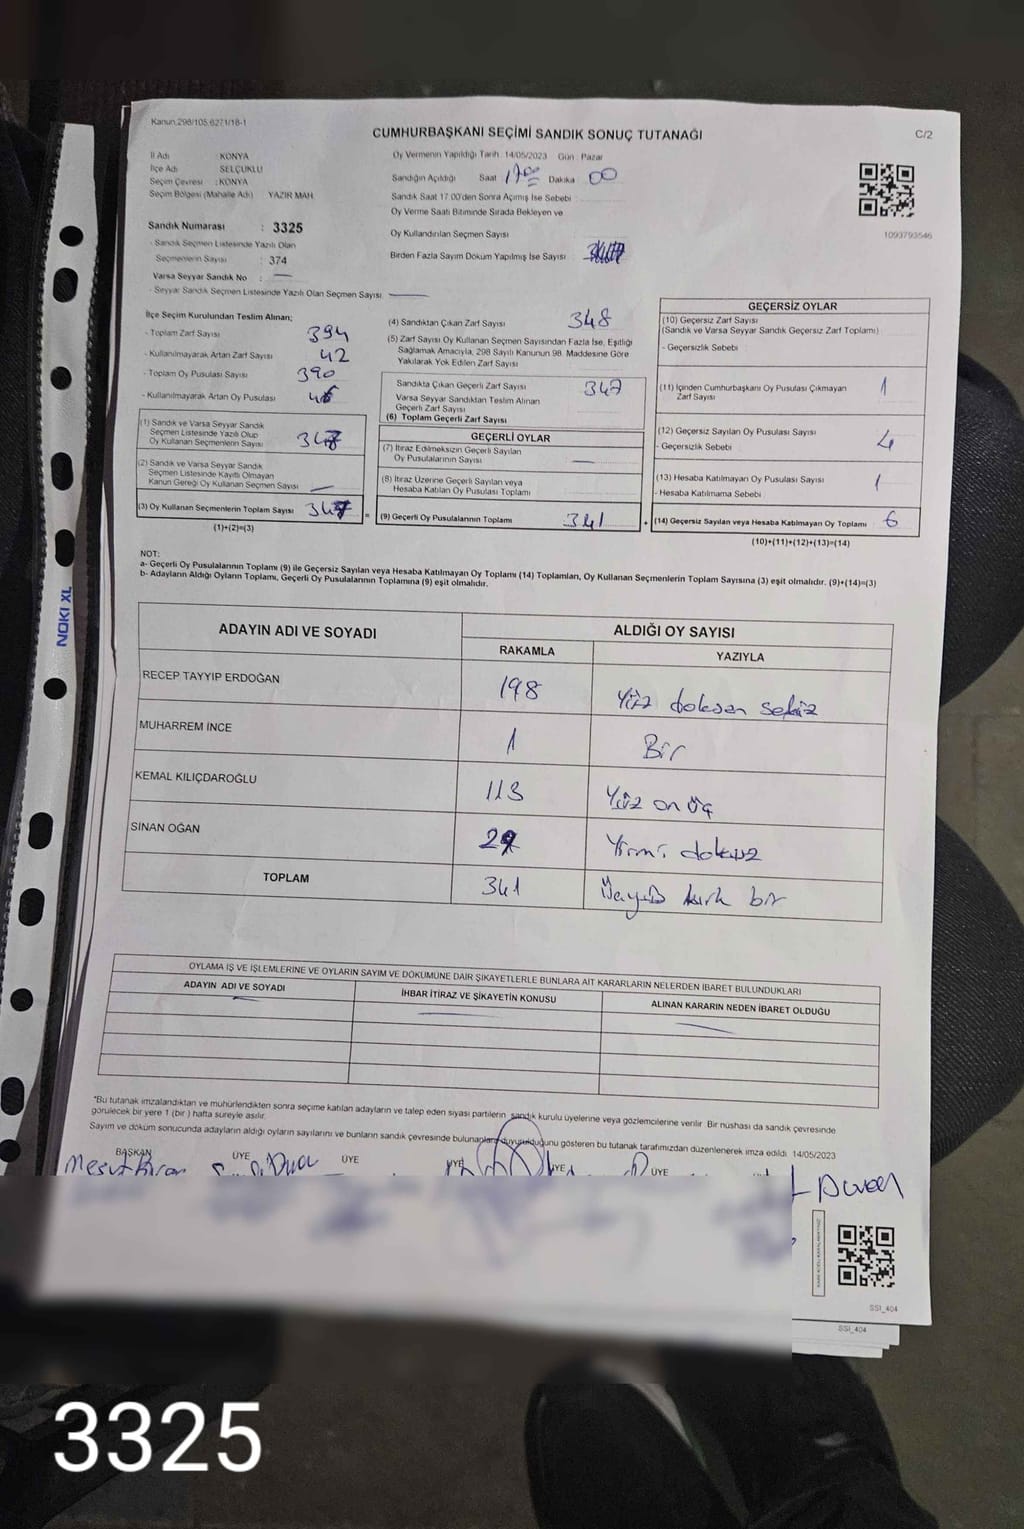 Kanun 298/105,6271/18-1
CUMHURBAŞKANI SEÇİMİ SANDIK SONUÇ TUTANAĞI
C/2
İl Adı KONYA
İlçe Adı SELÇUKLU
Seçim Çevresi : KONYA
Seçim Bölgesi (Mahalle Adı) YAZIR MAH
Sandık Numarası : 3325
- Sandık Seçmen Listesinde Yazılı Olan
Seçmenlerin Sayısı : 374
Varsa Seyyar Sandık No :
- Seyyar Sandık Seçmen Listesinde Yazılı Olan Seçmen Sayısı
Oy Vermenin Yapıldığı Tarih 14/05/2023 Gün Pazar
Sandığın Açıldığı Saat 17:00 Dakika 00
Sandık Saat 17.00'den Sonra Açılmış İse Sebebi
Oy Verme Saati Bitiminde Sırada Bekleyen ve
Oy Kullandırılan Seçmen Sayısı
Birden Fazla Sayım Döküm Yapılmış İse Sayısı
1093793546
İlçe Seçim Kurulundan Teslim Alınan;
- Toplam Zarf Sayısı 394
- Kullanılmayarak Artan Zarf Sayısı 42
- Toplam Oy Pusulası Sayısı 390
- Kullanılmayarak Artan Oy Pusulası
(1) Sandık ve Varsa Seyyar Sandık
Seçmen Listesinde Yazılı Olup
Oy Kullanan Seçmenlerin Sayısı 347
(2) Sandık ve Varsa Seyyar Sandık
Seçmen Listesinde Kayıtlı Olmayan
Kanun Gereği Oy Kullanan Seçmen Sayısı
(3) Oy Kullanan Seçmenlerin Toplam Sayısı 347
(1)+(2)=(3)
(4) Sandıktan Çıkan Zarf Sayısı 348
(5) Zarf Sayısı Oy Kullanan Seçmen Sayısından Fazla İse, Eşitliği
Sağlamak Amacıyla, 298 Sayılı Kanunun 98. Maddesine Göre
Yakılarak Yok Edilen Zarf Sayısı
Sandıkta Çıkan Geçerli Zarf Sayısı 347
Varsa Seyyar Sandıktan Teslim Alınan
Geçerli Zarf Sayısı
(6) Toplam Geçerli Zarf Sayısı
GEÇERLİ OYLAR
(7) İtiraz Edilmeksizin Geçerli Sayılan
Oy Pusulalarının Sayısı
(8) İtiraz Üzerine Geçerli Sayılan veya
Hesaba Katılan Oy Pusulası Toplamı
= (9) Geçerli Oy Pusulalarının Toplamı 341
GEÇERSİZ OYLAR
(10) Geçersiz Zarf Sayısı
(Sandık ve Varsa Seyyar Sandık Geçersiz Zarf Toplamı)
- Geçersizlik Sebebi
(11) İçinden Cumhurbaşkanı Oy Pusulası Çıkmayan
Zarf Sayısı 1
(12) Geçersiz Sayılan Oy Pusulası Sayısı 4
- Geçersizlik Sebebi
(13) Hesaba Katılmayan Oy Pusulası Sayısı 1
- Hesaba Katılmama Sebebi
+ (14) Geçersiz Sayılan veya Hesaba Katılmayan Oy Toplamı 6
(10)+(11)+(12)+(13)=(14)
NOT:
a- Geçerli Oy Pusulalarının Toplamı (9) ile Geçersiz Sayılan veya Hesaba Katılmayan Oy Toplamı (14) Toplamları, Oy Kullanan Seçmenlerin Toplam Sayısına (3) eşit olmalıdır. (9)+(14)=(3)
b- Adayların Aldığı Oyların Toplamı, Geçerli Oy Pusulalarının Toplamına (9) eşit olmalıdır.
ADAYIN ADI VE SOYADI
ALDIĞI OY SAYISI
RAKAMLA YAZIYLA
RECEP TAYYIP ERDOĞAN 198 Yüz doksan sekiz
MUHARREM İNCE 1 Bir
KEMAL KILIÇDAROĞLU 113 Yüz on üç
SİNAN OĞAN 29 Yirmi dokuz
TOPLAM 341 Üçyüz kırk bir
OYLAMA İŞ VE İŞLEMLERİNE VE OYLARIN SAYIM VE DÖKÜMÜNE DAİR ŞİKAYETLERLE BUNLARA AİT KARARLARIN NELERDEN İBARET BULUNDUKLARI
ADAYIN ADI VE SOYADI İHBAR İTİRAZ VE ŞİKAYETİN KONUSU ALINAN KARARIN NEDEN İBARET OLDUĞU
*Bu tutanak imzalandıktan ve mühürlendikten sonra seçime katılan adayların ve talep eden siyasi partilerin sandık kurulu üyelerine veya gözlemcilerine verilir. Bir nüshası da sandık çevresinde
görülecek bir yere 1 (bir) hafta süreyle asılır.
Sayım ve döküm sonucunda adayların aldığı oyların sayılarını ve bunların sandık çevresinde bulunanlara duyurulduğunu gösteren bu tutanak tarafımızdan düzenlenerek imza edildi. 14/05/2023
BAŞKAN ÜYE ÜYE ÜYE ÜYE ÜYE
SSI_404
SSI_404
3325
NOKI XL